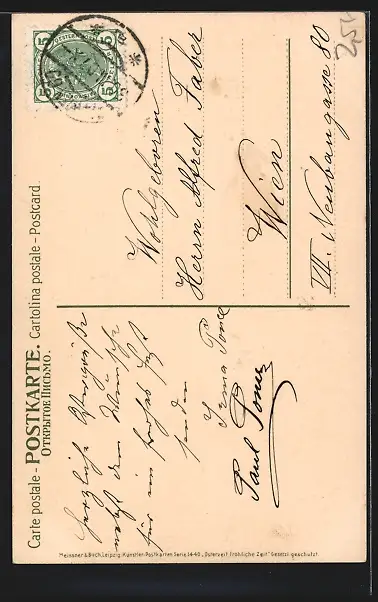 Carte postale – POSTKARTE. Cartolina postale – Postcard.
ОТКРЫТОЕ ПИСЬМО.
2,50
5 5
5 5
Herzliche Ostergrüße
nebst dem Wunsche
für ein frohes Fest
senden
Irma
Paul
Wohlgeboren
Herrn Alfred Faber
Wien
VII. Neubaugasse 80
Meissner & Buch, Leipzig. Künstler-Postkarten Serie 1440 „Osterzeit fröhliche Zeit" Gesetzl. geschützt.